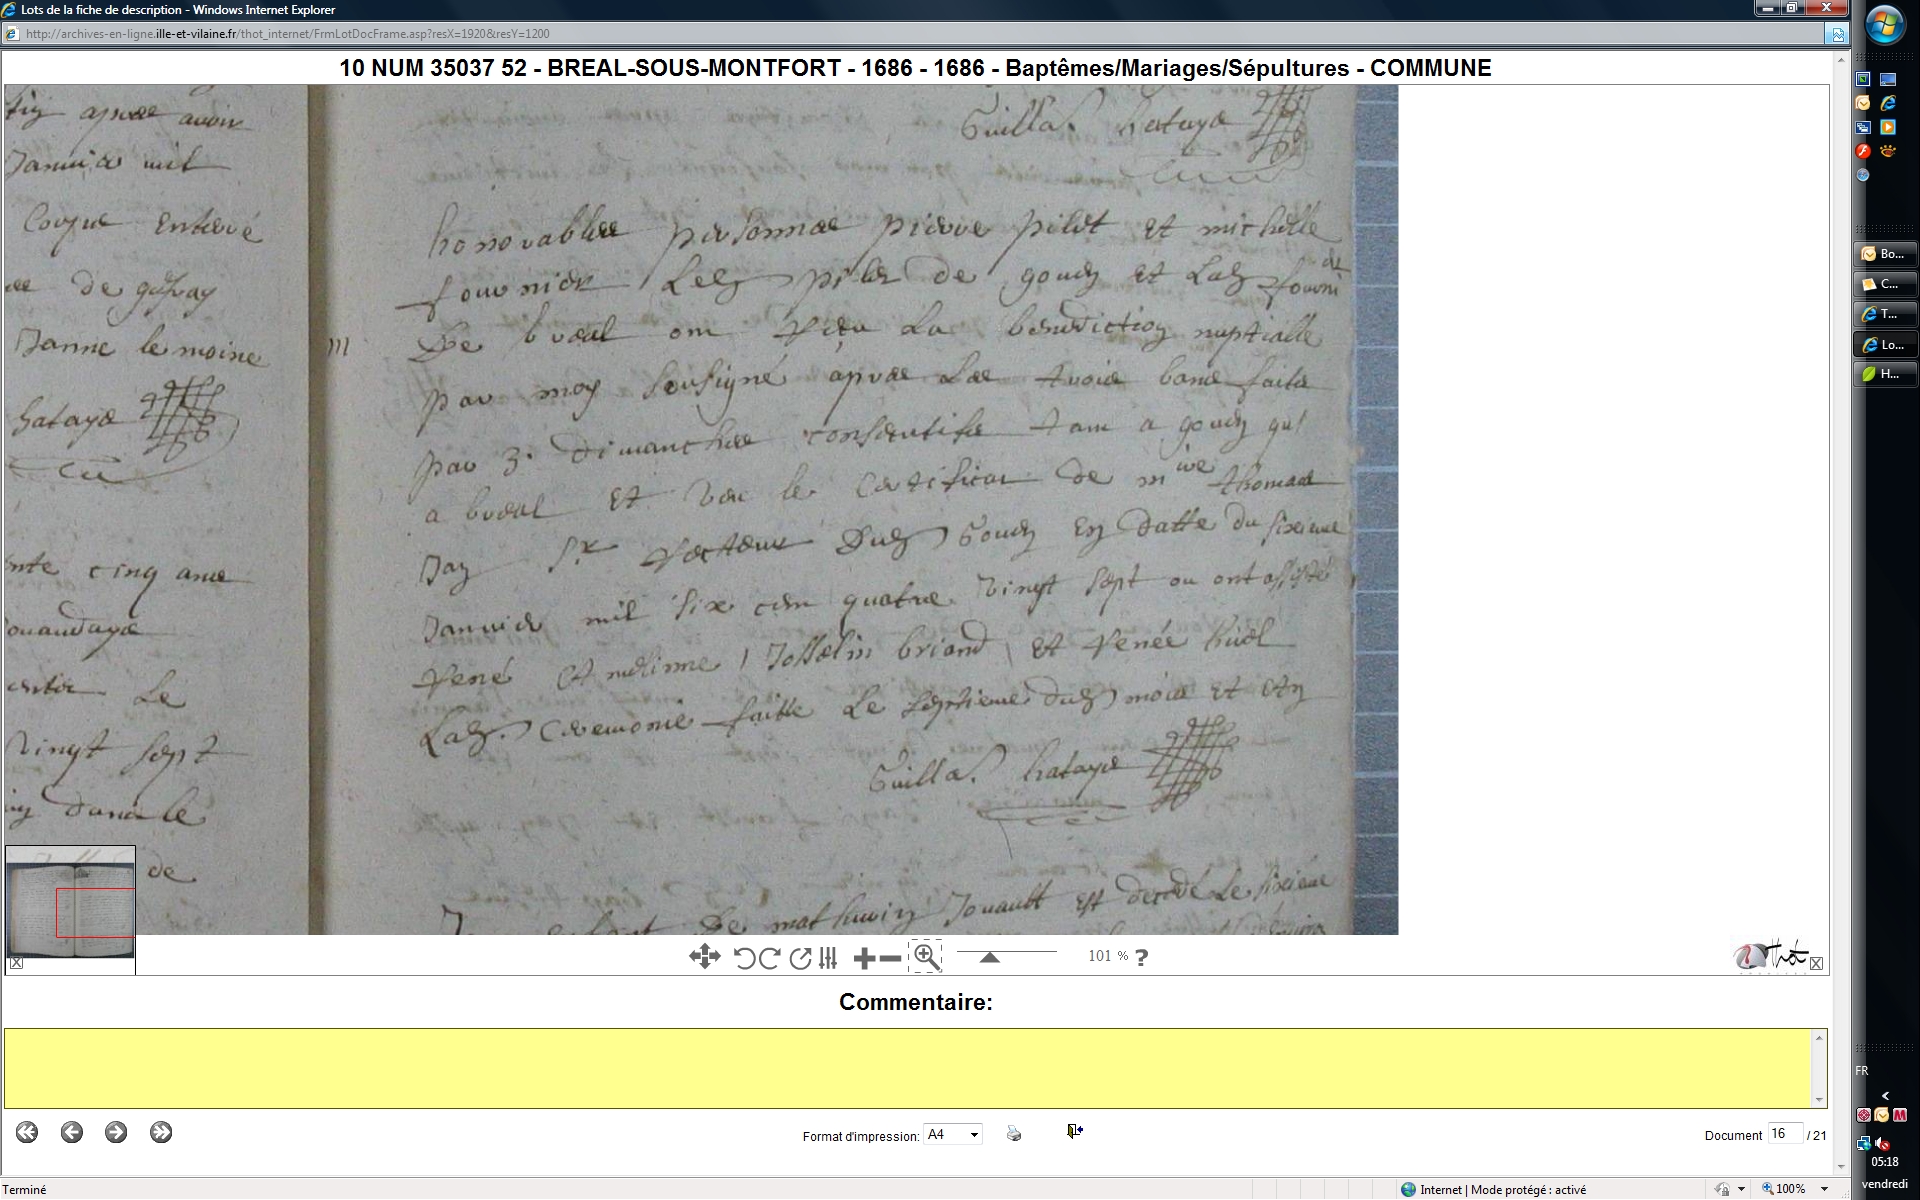 Lots de la fiche de description - Windows Internet Explorer
http://archives-en-ligne.ille-et-vilaine.fr/thot_internet/FrmLotDocFrame.asp?resX=1920&resY=1200
10 NUM 35037 52 - BREAL-SOUS-MONTFORT - 1686 - 1686 - Baptêmes/Mariages/Sépultures - COMMUNE
apres avoir
Janvier mil
Corps enterré
de
Janne le moine
hataye
cinq ans
Le
vingt sept
dans le
de
Guilla. hataye
honorables personnes pierre pilet et michelle
fournier Led pilet de gouen et Lad fourni
er
De breal ont receu La benediction nuptialle
M
par moy sousigné apres Les trois bans faits
par 3. dimanches consecutifs tant a gouen qu'
a breal et veu le certificat de mire thomas
Jan Sr recteur Dud Gouen en datte du sixieme
Janvier mil six cen quatre vingt sept ou ont assisté
René Josselin briand et renée
Lad. Ceremonie faitte Le septieme dud mois et an
Guilla. hataye
De mathurin Jouault est decedé Le sixieme
101 %
?
Thot
Commentaire:
Format d'impression: A4
Document 16 / 21
Terminé
Internet | Mode protégé : activé
100%
Bo...
C...
T...
Lo...
H...
FR
05:18
vendredi